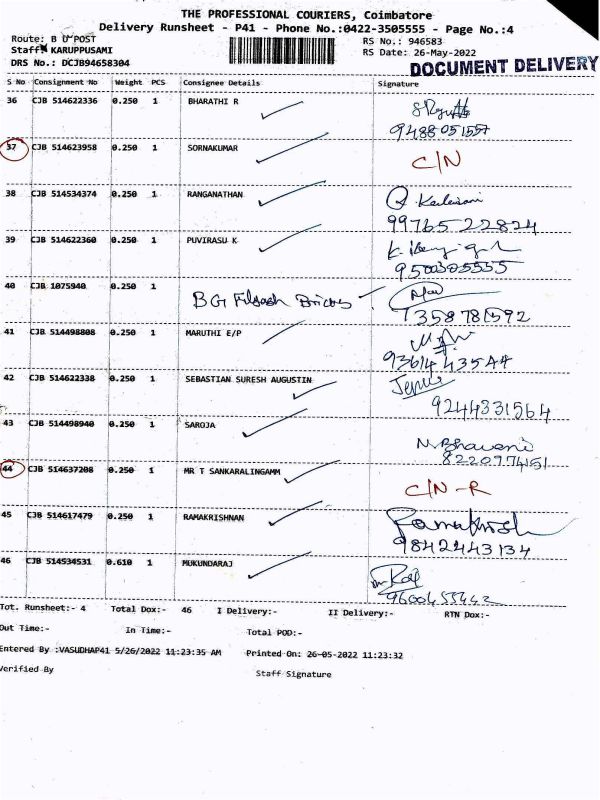 THE PROFESSIONAL COURIERS, Coimbatore
Delivery Runsheet - P41 - Phone No.:0422-3505555 - Page No.:4
Route: B U POST
RS No.: 946583
Staff: KARUPPUSAMI
RS Date: 26-May-2022
DRS No.: DCJB94658304
DOCUMENT DELIVERY
S No Consignment No Weight PCS Consignee Details Signature
36 CJB 514622336 0.250 1 BHARATHI R
9488051557
37 CJB 514623958 0.250 1 SORNAKUMAR C/N
38 CJB 514534374 0.250 1 RANGANATHAN
9976522824
39 CJB 514622360 0.250 1 PUVIRASU K
9500305555
40 CJB 1075940 0.250 1 BG
7358781592
41 CJB 514498808 0.250 1 MARUTHI E/P
9361443544
42 CJB 514622338 0.250 1 SEBASTIAN SURESH AUGUSTIN
9244331564
43 CJB 514498940 0.250 1 SAROJA N.Bhavani
8220974151
44 CJB 514637208 0.250 1 MR T SANKARALINGAMM C/N-R
45 CJB 514617479 0.250 1 RAMAKRISHNAN
9842443134
46 CJB 514534531 0.610 1 MUKUNDARAJ
9600455442
Tot. Runsheet:- 4 Total Dox:- 46 I Delivery:- II Delivery:- RTN Dox:-
Out Time:- In Time:- Total POD:-
Entered By :VASUDHAP41 5/26/2022 11:23:35 AM Printed On: 26-05-2022 11:23:32
Verified By Staff Signature